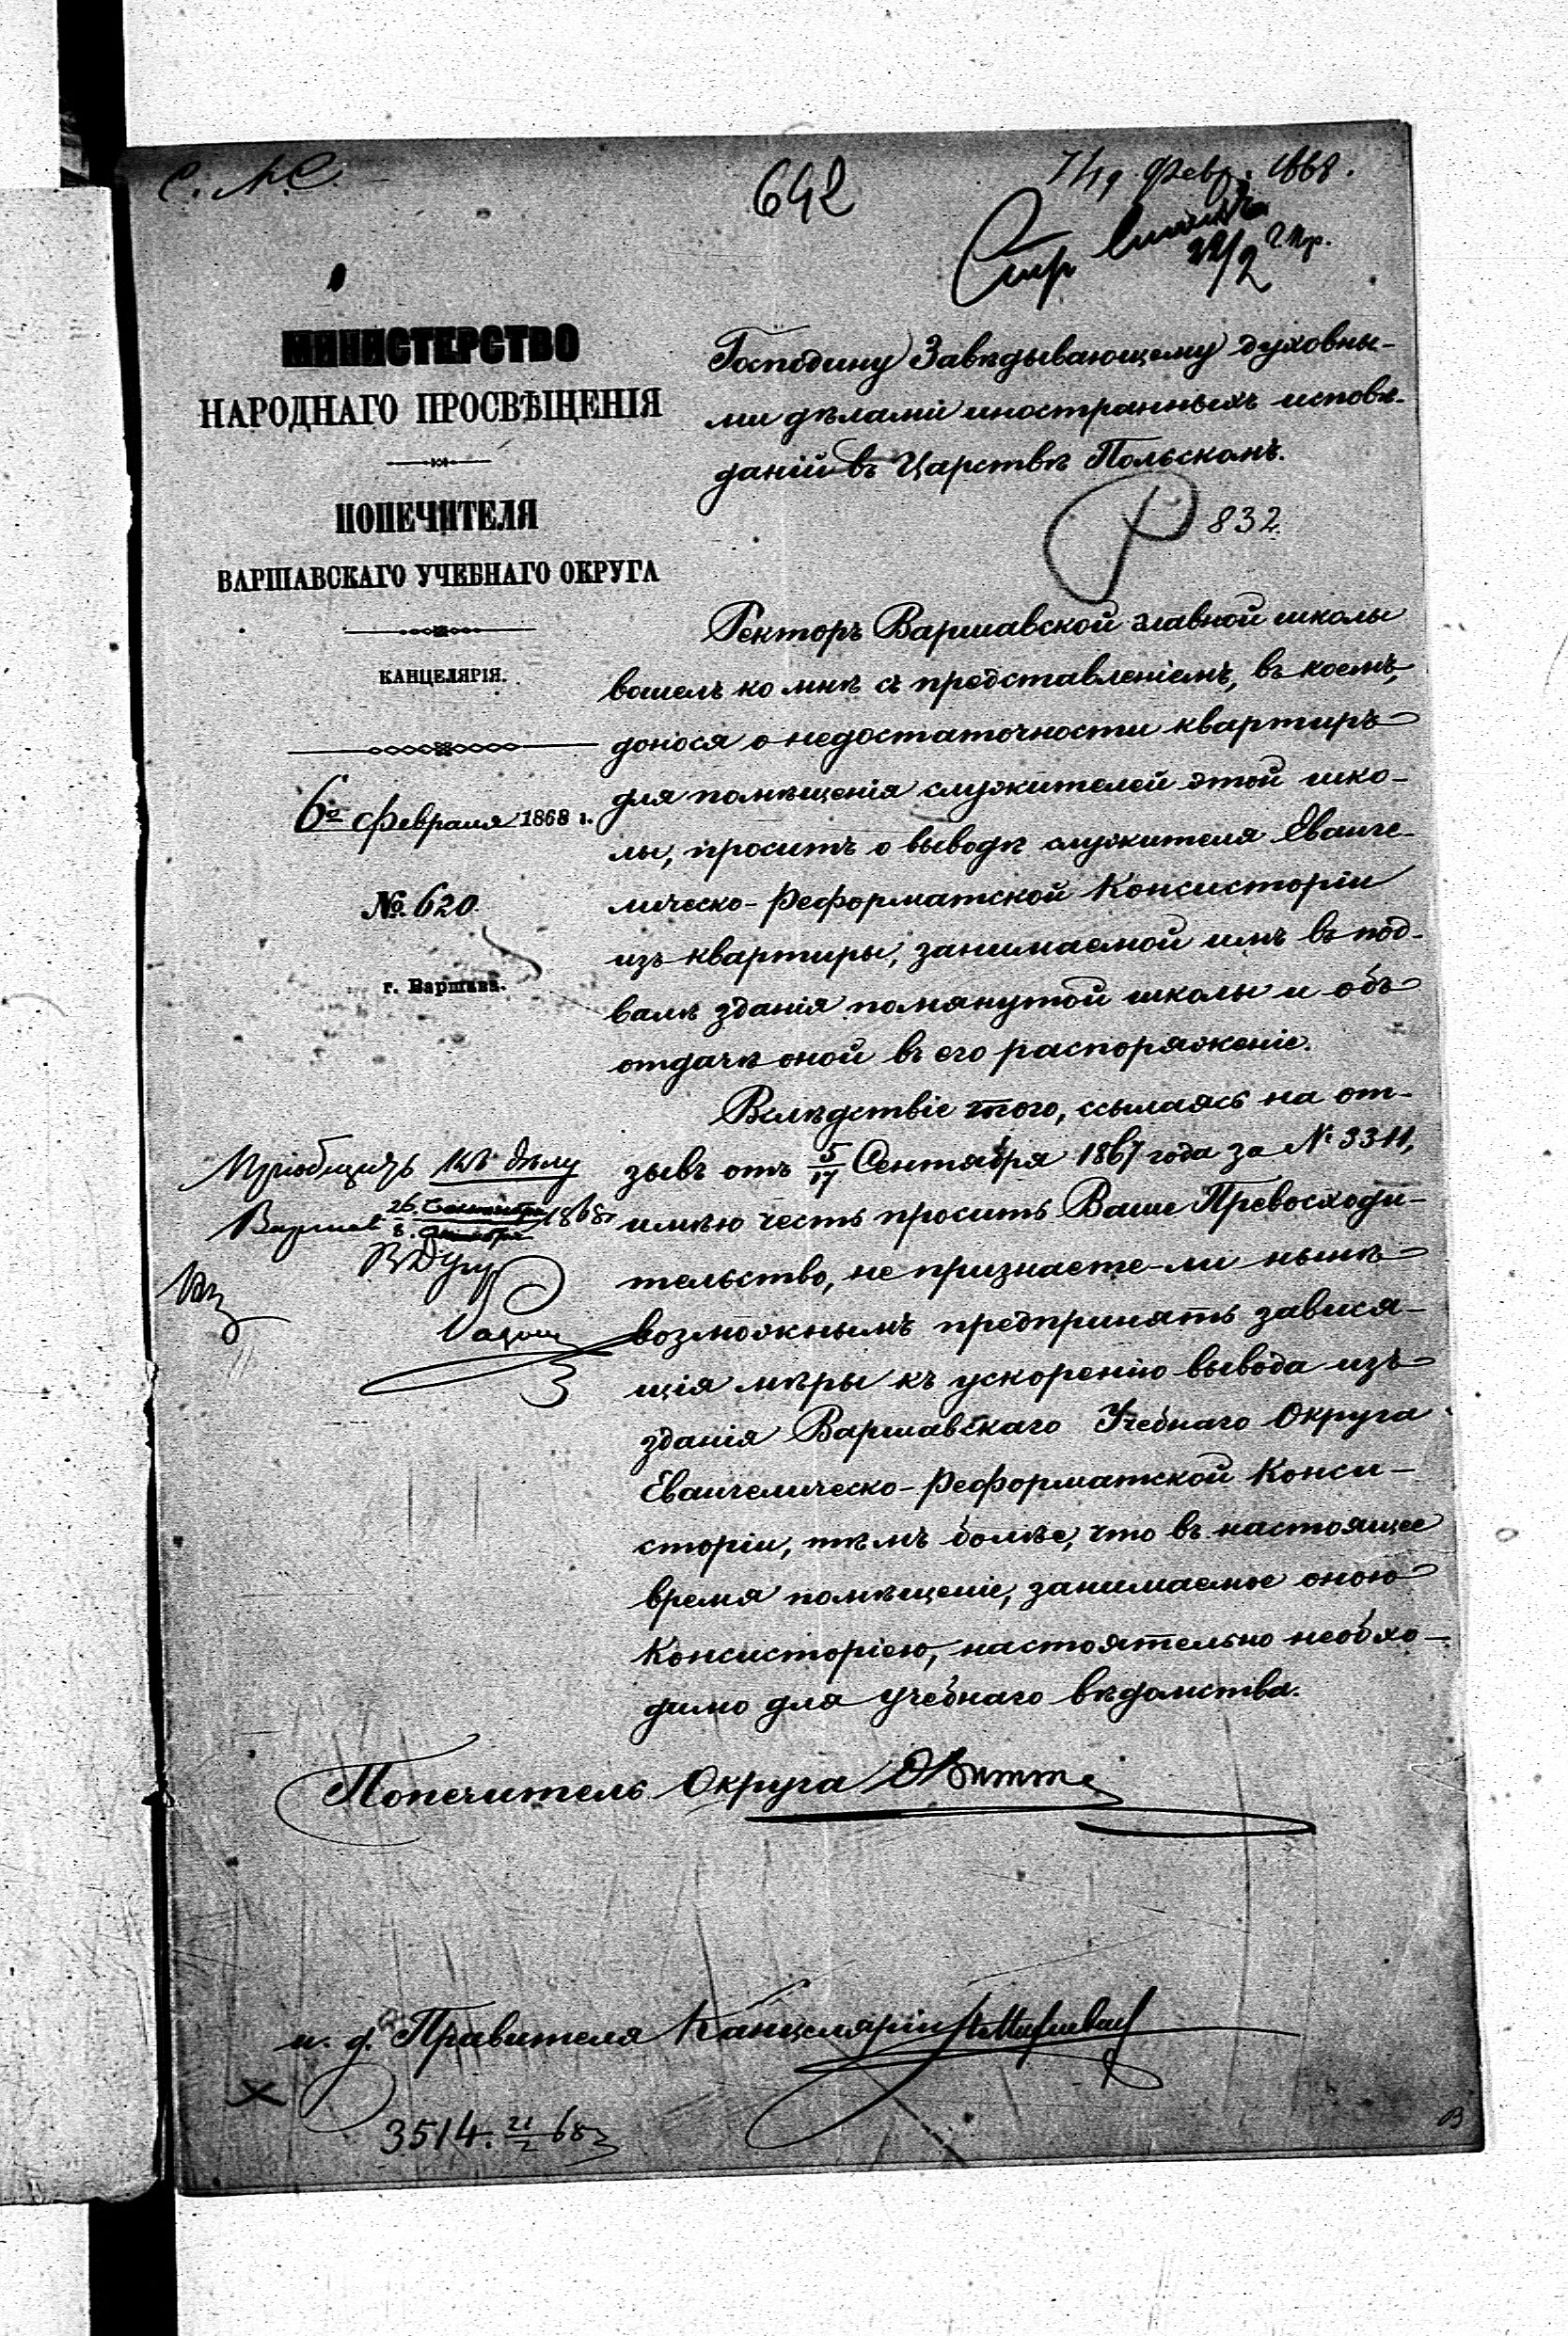 С. М. С.
642
7/19 Февр. 1868.
22/2
МИНИСТЕРСТВО
НАРОДНАГО ПРОСВѢЩЕНІЯ
ПОПЕЧИТЕЛЯ
ВАРШАВСКАГО УЧЕБНАГО ОКРУГА
КАНЦЕЛЯРІЯ.
6го Февраля 1868 г.
№ 620
г. Варшава.
Господину Завѣдывающему духовны-
ми дѣлами иностранныхъ исповѣ-
даній въ Царствѣ Польскомъ.
832
Ректоръ Варшавской главной школы
вошелъ ко мнѣ съ представленіемъ, въ коемъ,
донося о недостаточности квартиръ
для помѣщенія служителей этой шко-
лы, проситъ о выводѣ служителя Еванге-
лическо-Реформатской Консисторіи
изъ квартиры, занимаемой имъ въ под-
валѣ зданія помянутой школы и объ
отдачѣ оной въ его распоряженіе.
Вслѣдствіе того, ссылаясь на от-
зывъ отъ 5/17 Сентября 1867 года за № 3311,
имѣю честь просить Ваше Превосходи-
тельство, не признаете-ли нынѣ
возможнымъ предпринять завися-
щія мѣры къ ускоренію вывода изъ
зданія Варшавскаго Учебнаго Округа
Евангелическо-Реформатской Конси-
сторіи, тѣмъ болѣе, что въ настоящее
время помѣщеніе, занимаемое оною
Консисторіею, настоятельно необхо-
димо для учебнаго вѣдомства.
Пріобщить къ дѣлу
26. Сентября
8. Октября 1868
Попечитель Округа Ѳ Витте
и. д. Правителя Канцеляріи
3514. 21/2 68